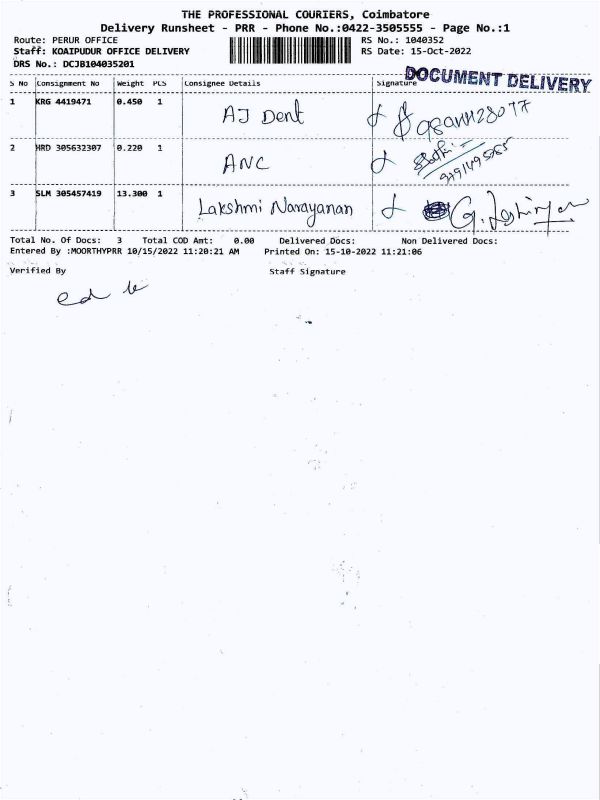 THE PROFESSIONAL COURIERS, Coimbatore
Delivery Runsheet - PRR - Phone No.:0422-3505555 - Page No.:1
Route: PERUR OFFICE
RS No.: 1040352
Staff: KOAIPUDUR OFFICE DELIVERY
RS Date: 15-Oct-2022
DRS No.: DCJB104035201
DOCUMENT DELIVERY
S No Consignment No Weight PCS Consignee Details Signature
1 KRG 4419471 0.450 1 AJ Dent
2 HRD 305632307 0.220 1 ANC
3 SLM 305457419 13.300 1 Lakshmi Narayanan
Total No. Of Docs: 3 Total COD Amt: 0.00 Delivered Docs: Non Delivered Docs:
Entered By :MOORTHYPRR 10/15/2022 11:20:21 AM Printed On: 15-10-2022 11:21:06
Verified By Staff Signature